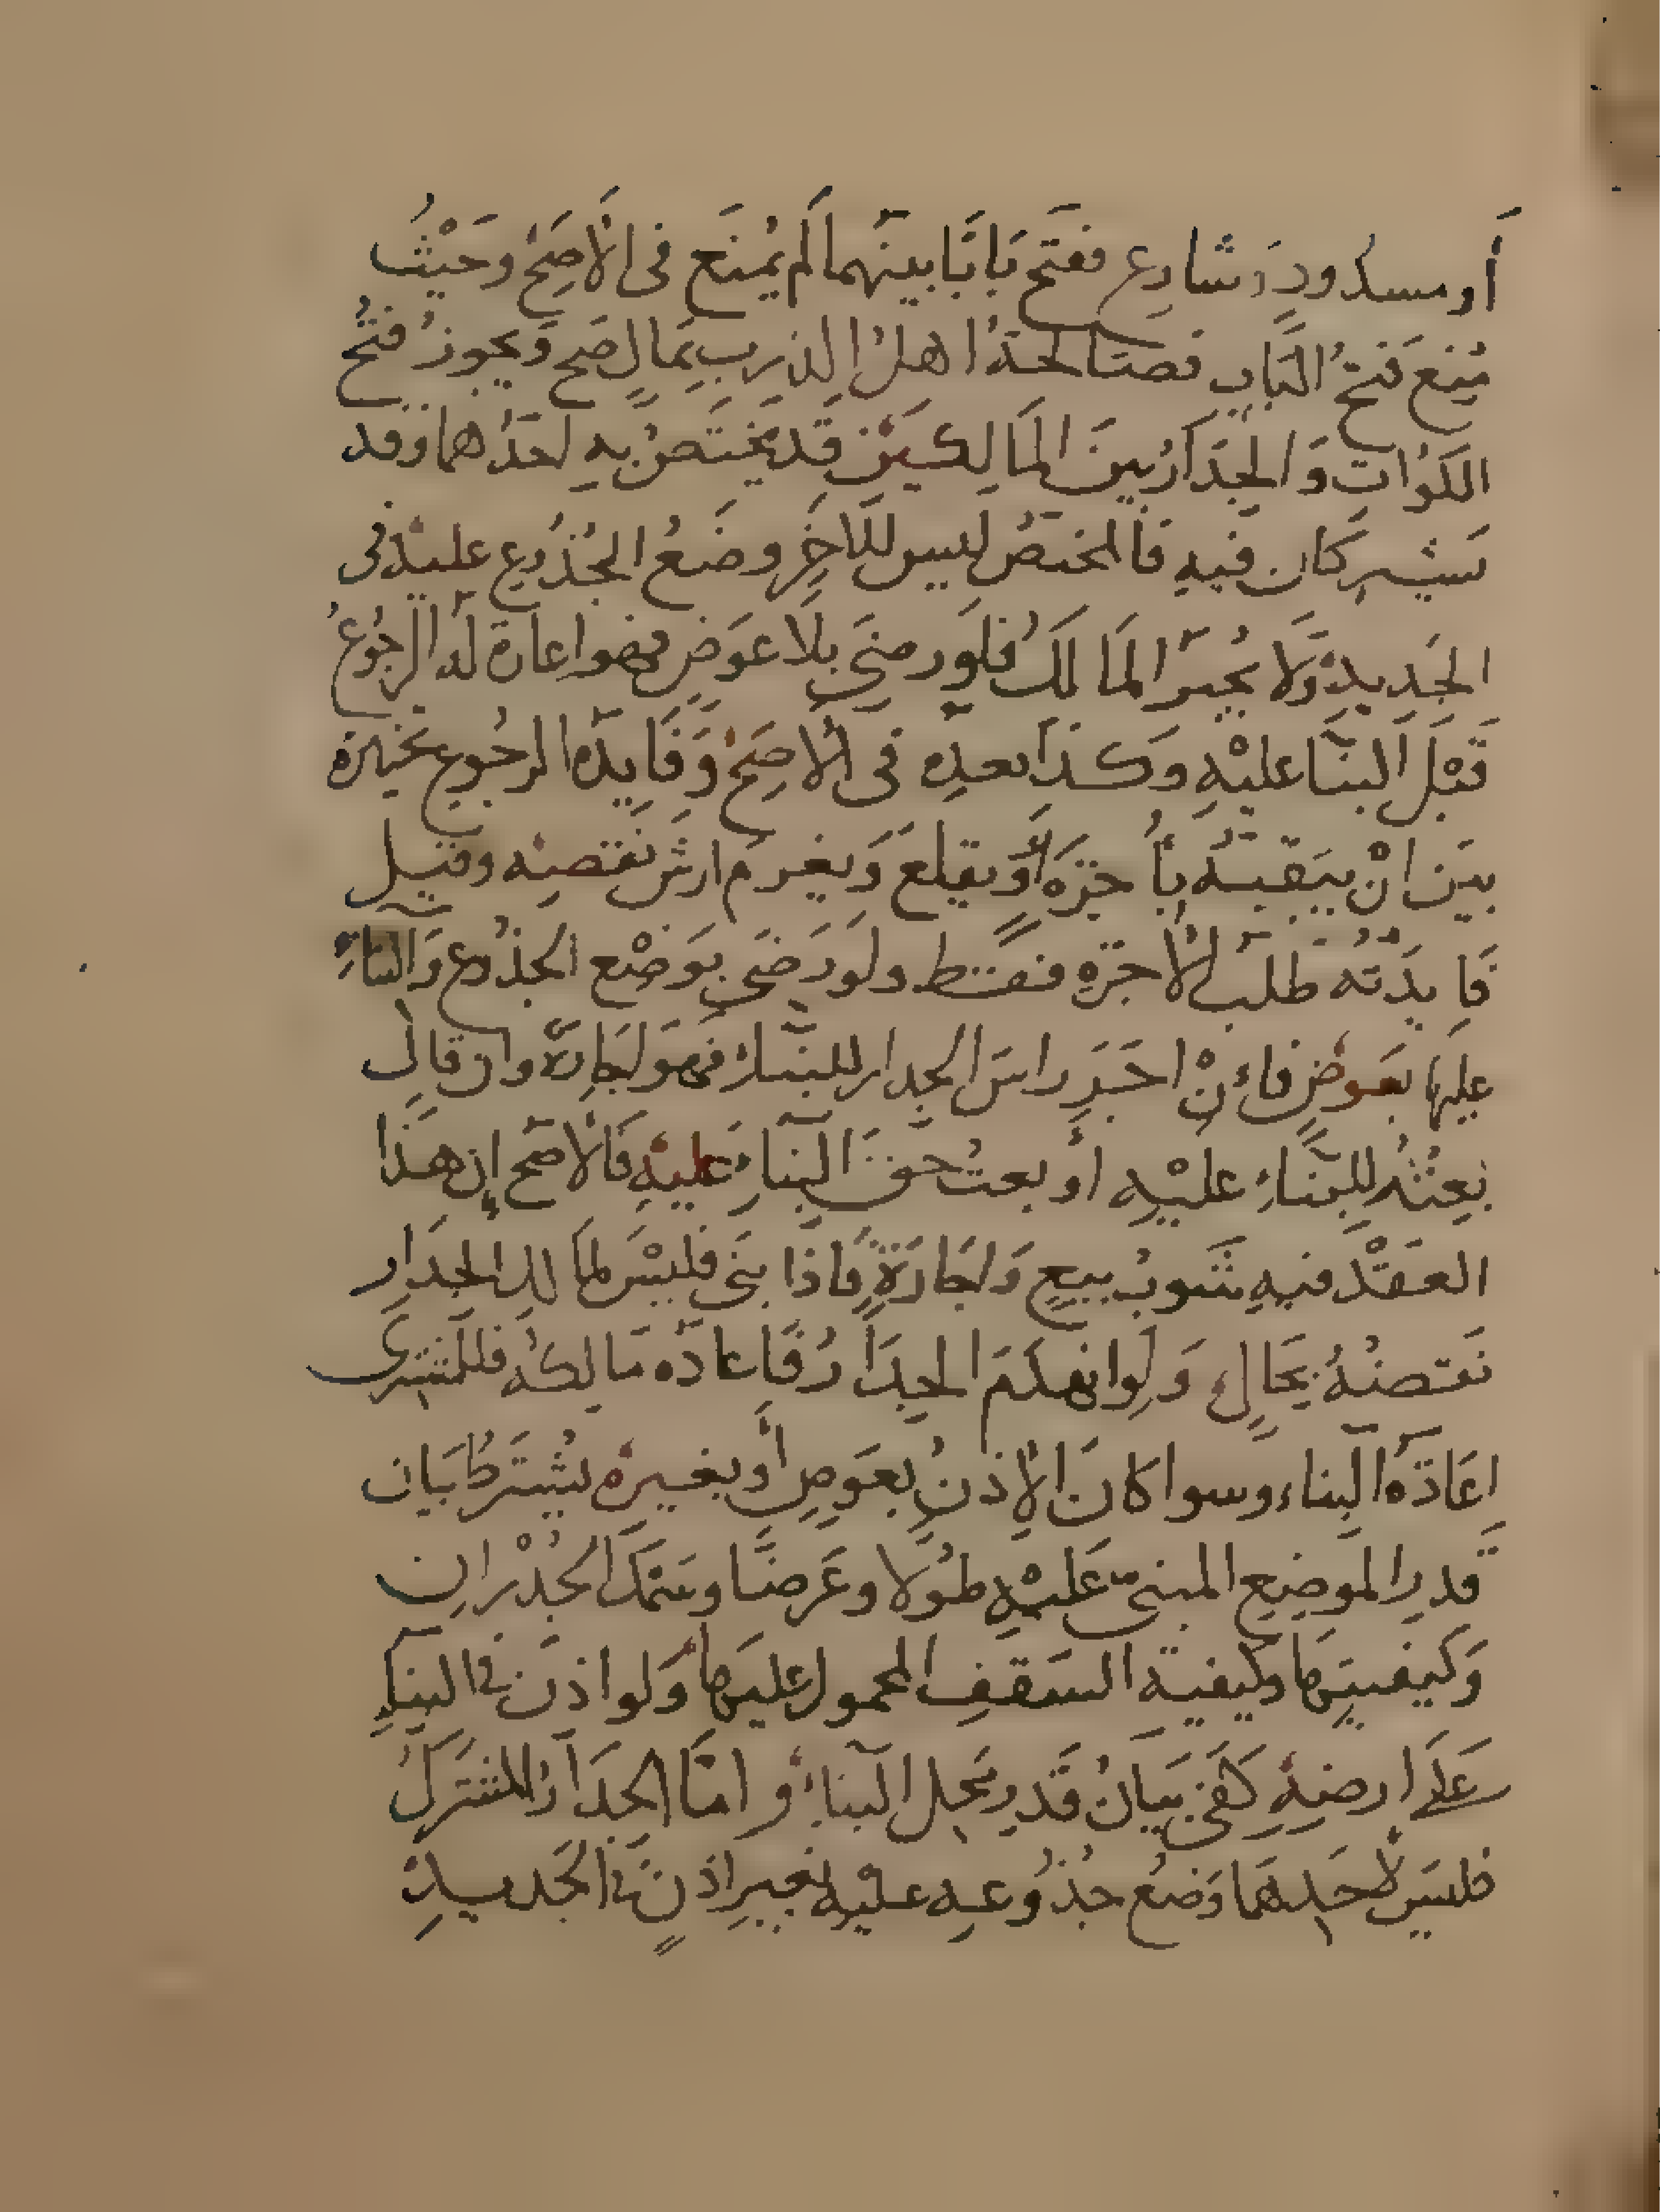 أو مسدود وشارع ففتح بَابًا بينهما لم يُمنَع فى الأصَحِّ وحَيْثُ
مُنِعَ فتحُ البَابِ فصَالحهُ اهلُ الدربِ بِمَالٍ صَح وَيجوزُ فتحُ
الكَوَّاتِ وَالجِدَارُ بينَ المَالِكَيْنِ قَد يَختَصُّ بهِ احَدُهما وقد
يشتركان فيهِ فالمختصُّ ليس للآخِرِ وضعُ الجُذُوع عليه فى
الجَديدِ وَلا يُجبَرُ المَالكُ فلَو رضىَ بلاَ عوَضٍ فهو اعارة لَه الرجُوعُ
قَبْلَ البنَآ عليْهِ وكذا بعدَه فى الأصَحِّ وَفَايدَه الرجُوع تخيره
بينَ انْ يبَقيَهُ بأُجرَهٍ أوْ يقلع وَيغرم ارشَ نقصِه وقيل
فَايدَتُه طلبُ الأجرَهِ فقط ولو رَضىَ بوَضْع الجذُوع وَالبنآءِ
عليها بعَوضٍ فاءنْ اجَرَ راسَ الجدار للبنآء فهوَ اجَارةٌ وان قال
بعتُهُ للبِنَآءِ عليْهِ أو بعتُ حقَّ البنَآءِ عَليْهِ فَالأصَح إن هذَا
العَقْدَ فيهِ شَوبُ بيعٍ وَاجَارَةٍ فَاذَا بنىَ فليْسَ لمَالكِ الجدَار
نَقضُهُ بحَالٍ وَلو انهدَمَ الجِدَارُ فَاعَادَه مَالِكُهُ فللمُشترى
اعَادَهُ البِنآء وسوا كانَ الإذنُ بعَوضٍ أو بغيره يُشترَطُ بيَان
قَدرِ الموضِعِ المبنىّ عَليْهِ طُولا وعَرضًا وسَمكَ الجُدْرانِ
وَكيفيتِهَا وكيفيَّةَ السَقفِ المحمول عليهَا وَلو اذنَ فى البنآءِ
عَلَى ارضِهِ كَفَى بيَانُ قَدرِ محَل البنَآء وامّا الجدَارُ المشتَرَكُ
فليسَ لأحَدِهمَا وَضعُ جُذُوعِه عليْهِ بغيرِ اذنٍ فى الجَديدِ